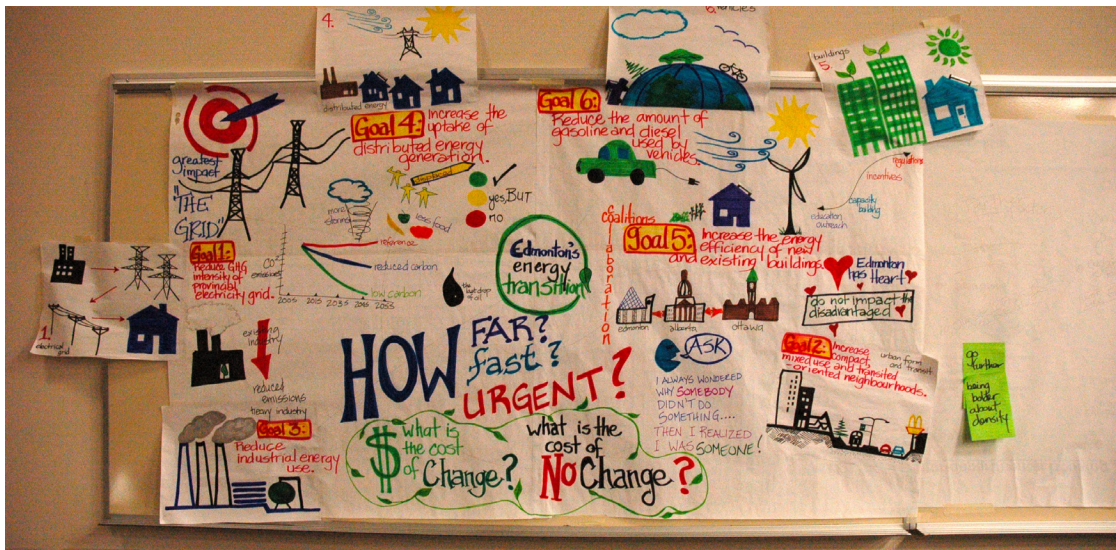 4.
distributed energy
vehicles
buildings
5.
greatest
impact
"THE
GRID"
Goal 4:
Increase the
uptake of
distributed energy
generation.
yes, BUT
no
more
storms
less food
Goal 6:
Reduce the amount of
gasoline and diesel
used by
vehicles.
regulations
incentives
capacity
building
education
outreach
1.
electrical
grid
Goal 1:
reduce GHG
intensity of
provincial
electricity grid.
CO2
emissions
reference
reduced carbon
low carbon
2005
2015
2035
2055
the last drop
of oil
Edmonton's
energy
transition
coalitions
collaboration
Goal 5:
Increase the energy
efficiency of new
and existing buildings.
edmonton
alberta
ottawa
Edmonton
has Heart
do not impact the
disadvantaged
existing
industry
reduced
emissions
heavy industry
Goal 3:
Reduce
industrial energy
use.
HOW
FAR?
fast?
URGENT?
$ what is
the cost
of Change?
what is the
cost of
No Change?
ASK
I ALWAYS WONDERED
WHY SOMEBODY
DIDN'T DO
SOMETHING....
THEN I REALIZED
I WAS SOMEONE!
Goal 2:
Increase
compact,
mixed use and transited
-oriented neighbourhoods.
urban form
and transit
go
further
being
bolder
about
density